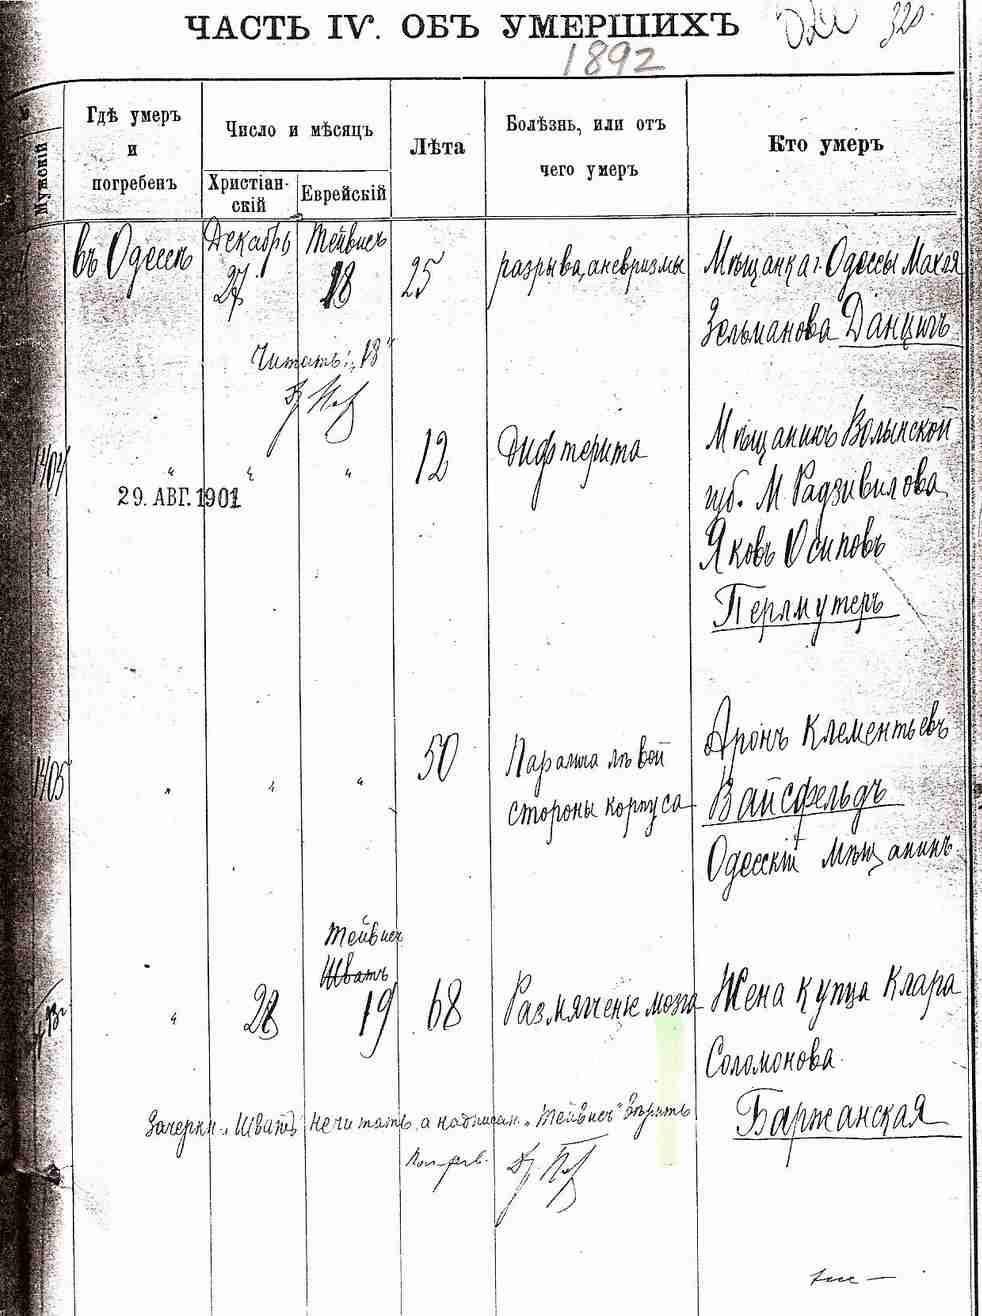 ЧАСТЬ IV. ОБЪ УМЕРШИХЪ
320.
1892
Мужскій
Гдѣ умеръ
и
погребенъ
Число и мѣсяцъ
Христіан-
скій
Еврейскій
Лѣта
Болѣзнь, или отъ
чего умеръ
Кто умеръ
въ Одессѣ
Декабрь
27
Тейвисъ
18
25
разрыва аневризмы
Мѣщанка г. Одессы
Зельманова Данцигъ
Читать: „18"
1404
„ „ „
12
Дифтерита
Мѣщанинъ Волынской
губ. М. Радзивилова
Яковъ Осиповъ
Перлмутеръ
29. АВГ. 1901
1405
„ „ „
50
Паралича лѣвой
стороны корпуса
Аронъ Клементьевъ
Вайсфельдъ
Одесскій мѣщанинъ
„
28
Тейвисъ
Шватъ
19
68
Размягченіе мозга
Жена купца Клара
Соломонова
Баржанская
Зачеркн. „Шватъ" не читать, а надписан. „Тейвисъ" вѣрить